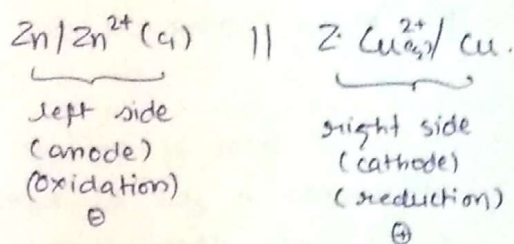 Zn/Zn²⁺(C₁) || Cu²⁺(C₂)/Cu.
left side
(anode)
(oxidation)
⊖
right side
(cathode)
(reduction)
⊕